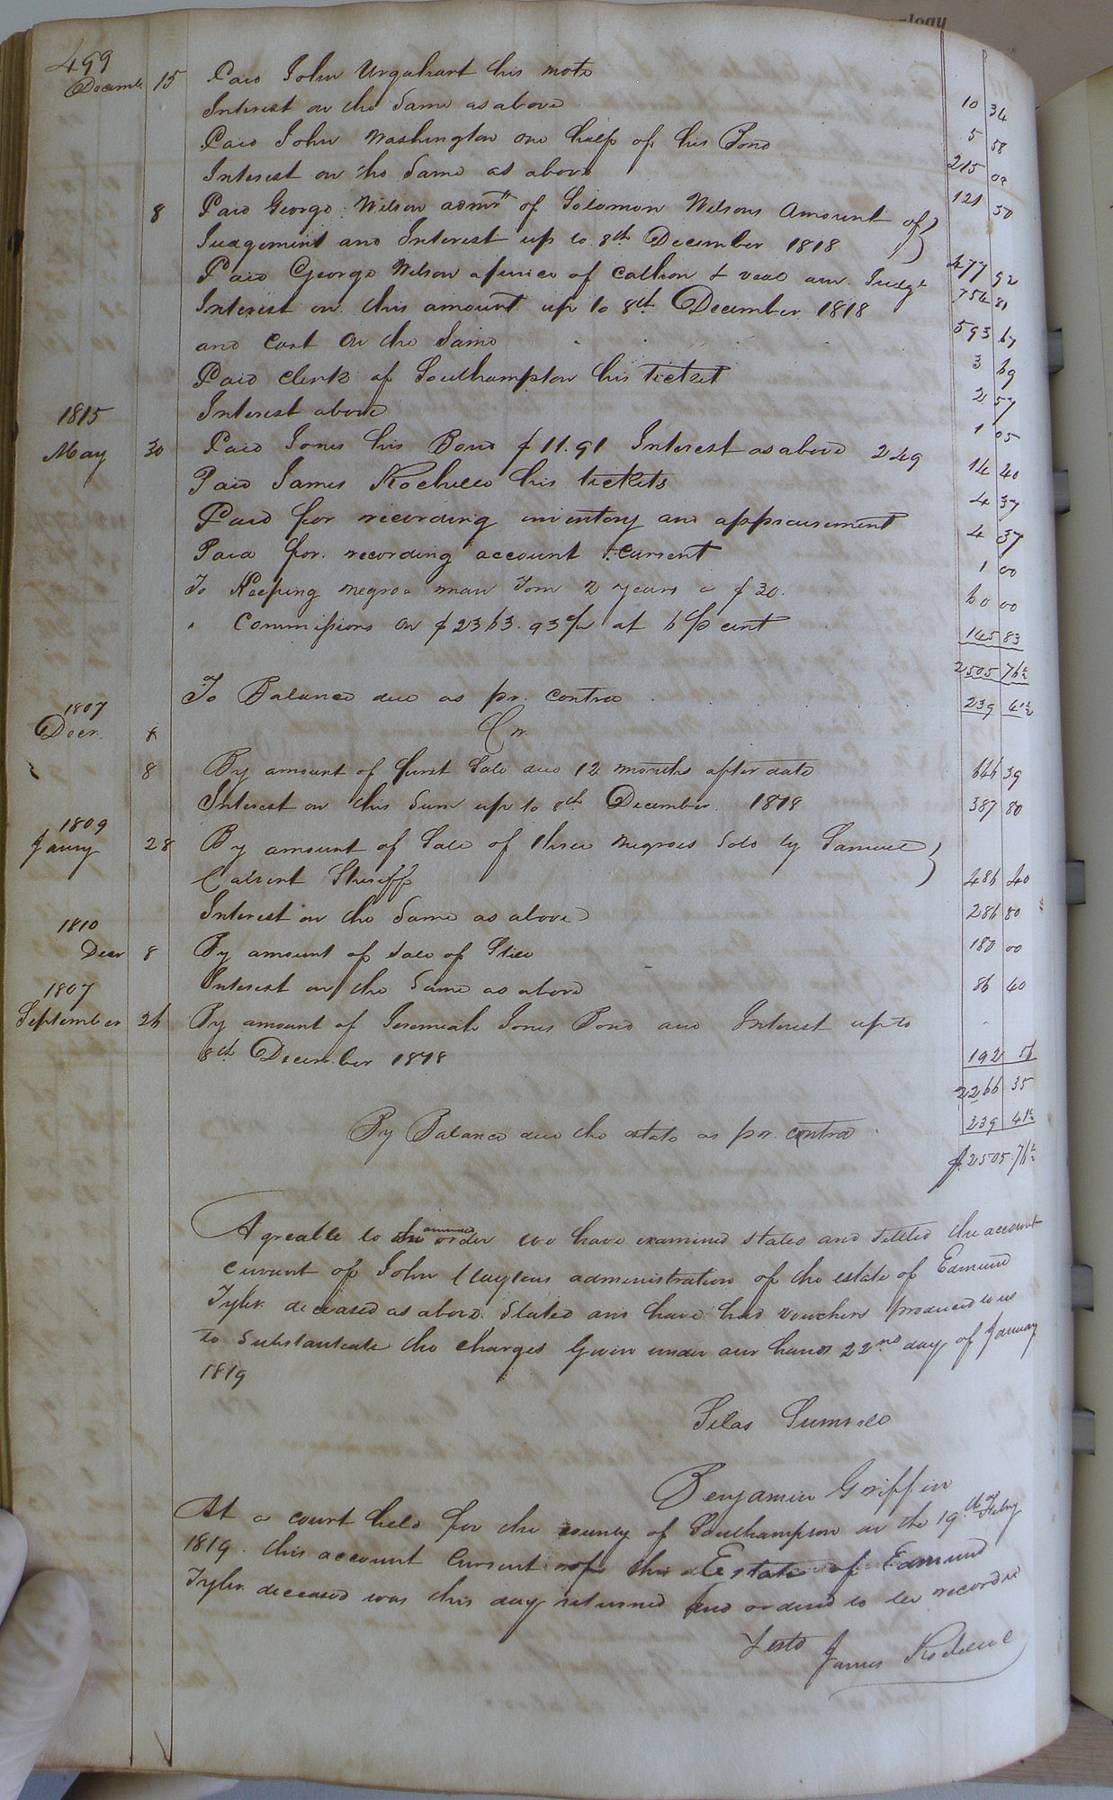 ology
499
Decemb 15 Paid John Urquhart his note 10 34
Interest on the Same as above 5 58
Paid John Washington one half of his Bond 215 02
Interest on the Same as above 121 50
8 Paid George Wilson admr of Solomon Wilsons Amount of
Judgement and Interest up to 8th December 1818 477 92
Paid George Wilson of Calhon & veal am. Judgt 754 81
Interest on this amount up to 8th December 1818 593 67
and Cost On the Same 3 69
Paid Clerk of Southampton his ticket 2 57
Interest above 1 05
1815
May 30 Paid Jones his Bond $11.91 Interest as above 249 14 40
Paid James Rochelle his tickets 4 37
Paid for recording inventory and appraisement 4 37
Paid for recording account Current 1 00
To Keeping negroe man Tom 2 years @ $30. 60 00
" Commissions on $2363.93 1/2 at 6 P cent 145 83
2505 76 1/2
To Balance due as pr. contra 239 41 1/2
1807
Decr. 8 Cr
8 By amount of first Sale due 12 months after date 646 39
Interest on this Sum up to 8th December 1818 387 80
1809
Janry 28 By amount of Sale of three negroes Sold by Samuel
Calvert Sheriff 486 40
Interest on the Same as above 286 80
1810
Decr 8 By amount of Sale of Still 180 00
Interest on the Same as above 86 40
1807
September 26 By amount of Jeremiah Jones Bond and Interest up to
8th December 1818 192 56
2266 35
239 41 1/2
By Balance due the estate as pr. contra
$2505.76 1/2
Agreable to the annexed order we have examined stated and Settled the account
Current of John Claytons administration of the estate of Edmund
Tyler deceased as above Stated and have had vouchers produced to us
to Substantiate the charges Given under our hands 22nd day of January
1819
Silas Summell
Benjamin Griffin
At a court held for the county of Southampton on the 19th of Febry
1819. this account Current of the Estate of Edmund
Tyler deceased was this day returned and ordered to be recorded
Teste James Rochelle